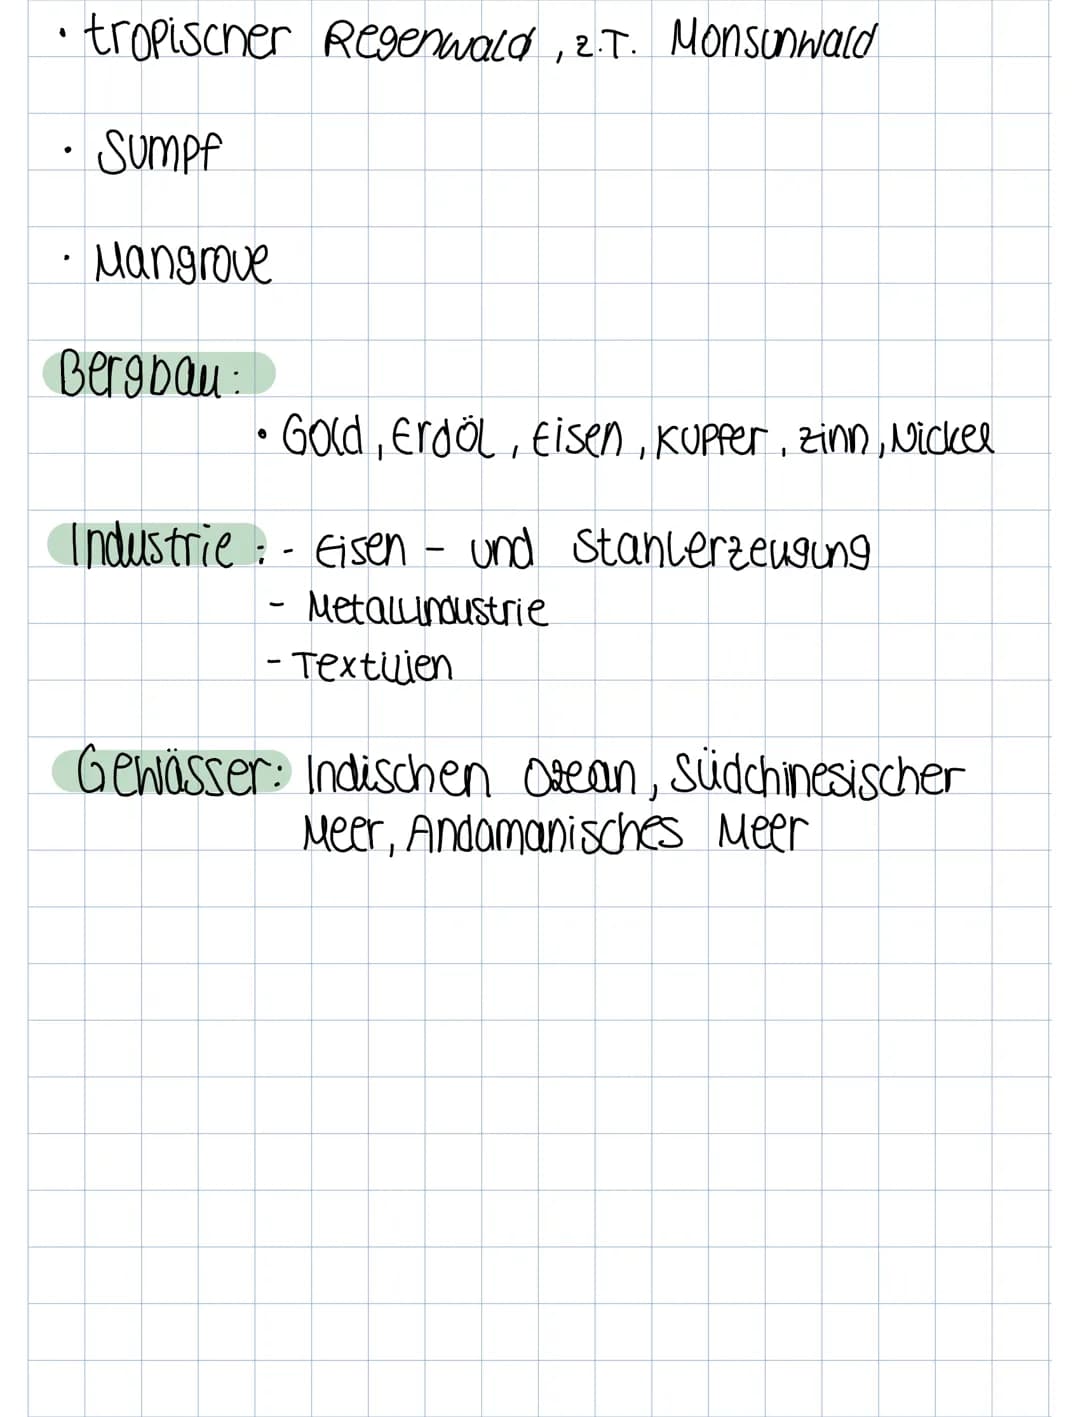 · tropischer Regenwald, z.T. Monsunwald
· Sumpf
· Mangrove
Bergbau:
· Gold, Erdöl, Eisen, Kupfer, Zinn, Nickel
Industrie: - Eisen - und Stahlerzeugung
- Metallindustrie
- Textilien
Gewässer: Indischen Ozean, Südchinesischer
Meer, Andamanisches Meer